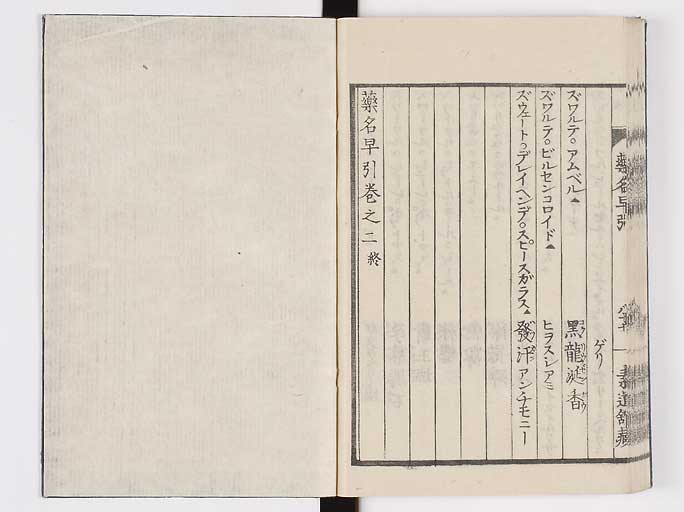 ゲリ
ズワルテ。アムベル▲ 黒龍涎香
ズワルテ。ビルセンコロイド▲ ヒヨスシアミ
ズウェートっデレイヘンデ。スピースガラス▲ 發汗アンチモニー
藥名早引巻之二 終
藥名早引